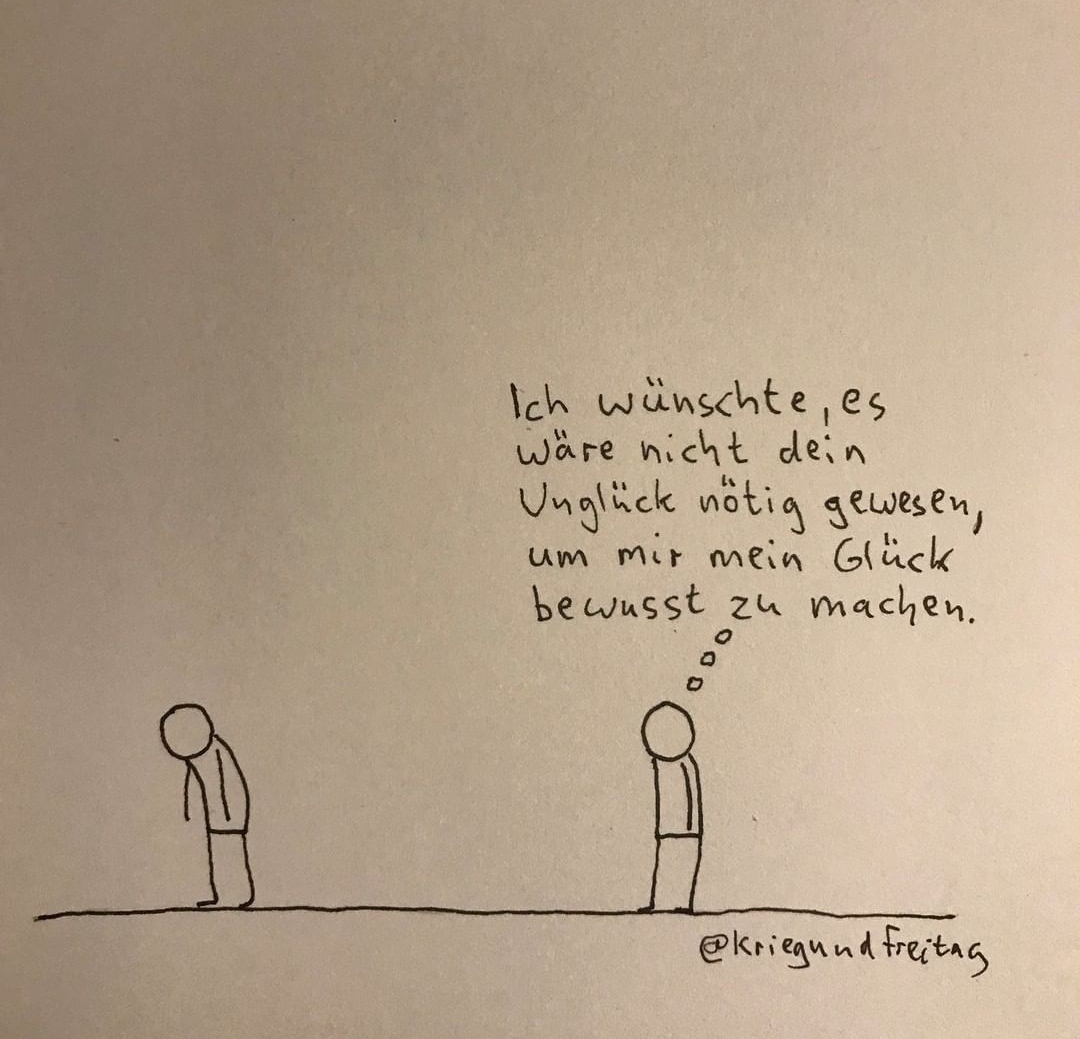 Ich wünschte, es
wäre nicht dein
Unglück nötig gewesen,
um mir mein Glück
bewusst zu machen.
@kriegundfreitag